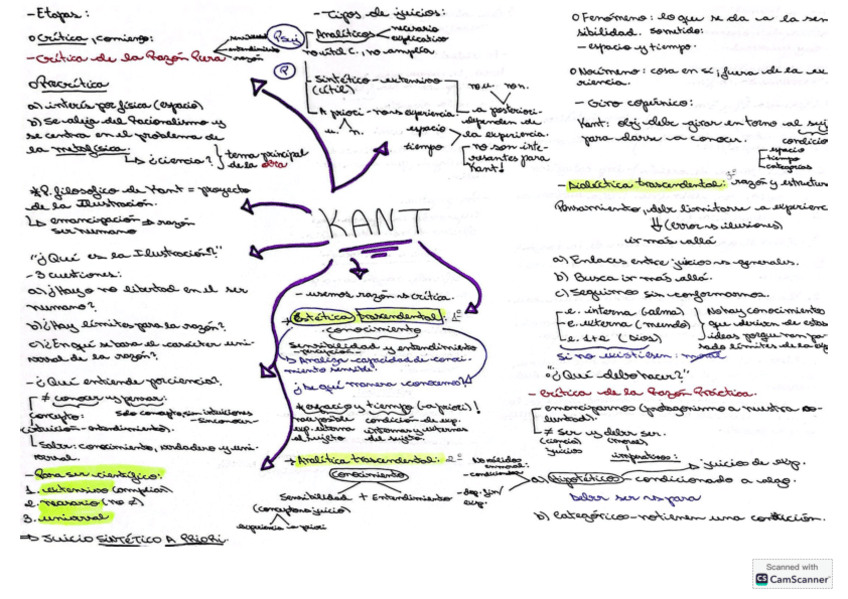 - Etapas:
o Crítica, comienzo:
- Crítica de la Razón Pura
sensibilidad
entendimiento
razón
o Precrítica
a) interés por física (espacio)
b) Se aleja del racionalismo y
se centra en el problema de
la metafísica
↳ ¿ciencia? } tema principal
de la obra
* P. filosófico de Kant = proyecto
de la Ilustración.
↳ emancipación → razón
ser humano
"¿Qué es la Ilustración?"
- 3 cuestiones:
a) ¿Hay o no libertad en el ser
humano?
b) ¿Hay límites para la razón?
c) ¿En qué se basa el carácter uni-
versal de la razón?
- ¿Qué entiende por ciencia?
≠ conocer y pensar:
concepto: solo conceptos sin intuiciones
(intuición - entendimiento). - sin conocer
Saber: conocimiento, verdadero y uni-
versal.
- Para ser científico:
1. extensivo (amplían)
2. necesario (no ≠)
3. universal
⇒ Juicio SINTÉTICO A PRIORI.
- Tipos de juicios:
Analíticos
necesario
explicativo
no útil c., no amplía
- Sintético - extensivo
(útil)
no u. no n.
- A priori - no es experiencia.
u. n.
- a posteriori -
dependen de
la experiencia.
espacio
tiempo
no son inte-
resantes para
Kant
P
KANT
- usemos razón → crítica.
→ Estética trascendental: 1º
conocimiento
Sensibilidad y entendimiento
- percepción -
Analiza capacidad de conoci-
miento sensible.
¿De qué manera conocemos?
* espacio y tiempo (a priori)!
hace posible condición de exp.
exp. externa internas y externas
del sujeto.
→ Analítica trascendental: 2º
Conocimiento
Sensibilidad + Entendimiento
(conceptos y juicio)
experiencia a priori
o Fenómeno: lo que se da a la sen
sibilidad. sometido:
- espacio y tiempo.
o Noúmeno: cosa en sí, fuera de la ex
periencia.
- Giro copérnico:
Kant: obj. debe girar en torno al suj
para darse a conocer.
condicio
espacio
tiempo
categorías
- Dialéctica trascendental: 3º razón y estructura
Pensamiento, debe limitarse a experienc
⇓ (error es ilusiones)
ir más allá
a) Enlaces entre juicios → generales.
b) Busca ir más allá.
c) Seguimos sin conformarnos.
- e. interna (alma)
- e. externa (mundo)
- e. 1+2 (Dios)
No hay conocimiento
que deriven de estas
ideas porque han pa
sado límites de la exp
Si no existiesen: moral
"¿Qué debo hacer?"
- Crítica de la Razón Práctica.
emanciparnos (protagonismo a nuestra vo-
luntad).
≠ Ser y deber ser.
(ciencia) (moral)
juicios imperativos:
juicio de exp.
a) Hipotéticos - condicionado a algo.
Deber ser → para
b) Categóricos - no tienen una condición.
Scanned with
CS CamScanner